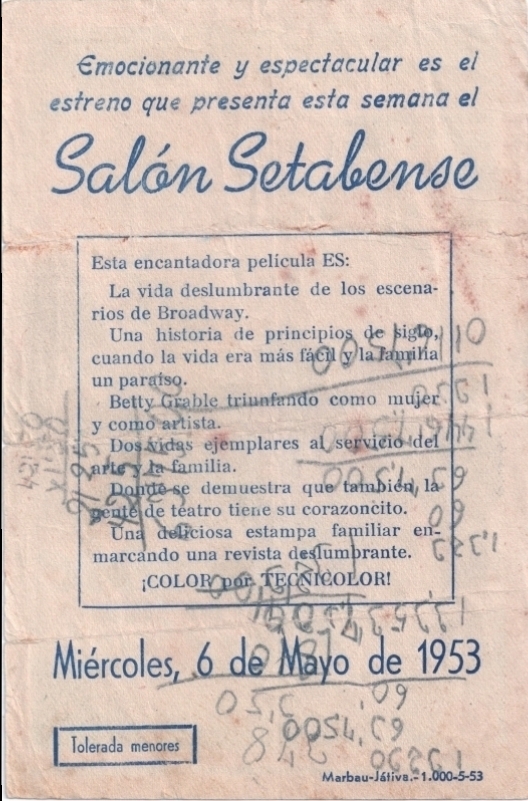 Emocionante y espectacular es el
estreno que presenta esta semana el
Salón Setabense
Esta encantadora película ES:
La vida deslumbrante de los escena-
rios de Broadway.
Una historia de principios de siglo,
cuando la vida era más fácil y la familia
un paraiso.
Betty Grable triunfando como mujer
y como artista.
Dos vidas ejemplares al servicio del
arte y la familia.
Donde se demuestra que también la
gente de teatro tiene su corazoncito.
Una deliciosa estampa familiar en-
marcando una revista deslumbrante.
¡COLOR por TECNICOLOR!
Miércoles, 6 de Mayo de 1953
Tolerada menores
Marbau-Játiva.-1.000-5-53